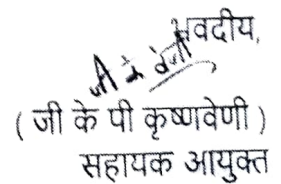 भवदीय,
( जी के पी कृष्णवेणी )
सहायक आयुक्त